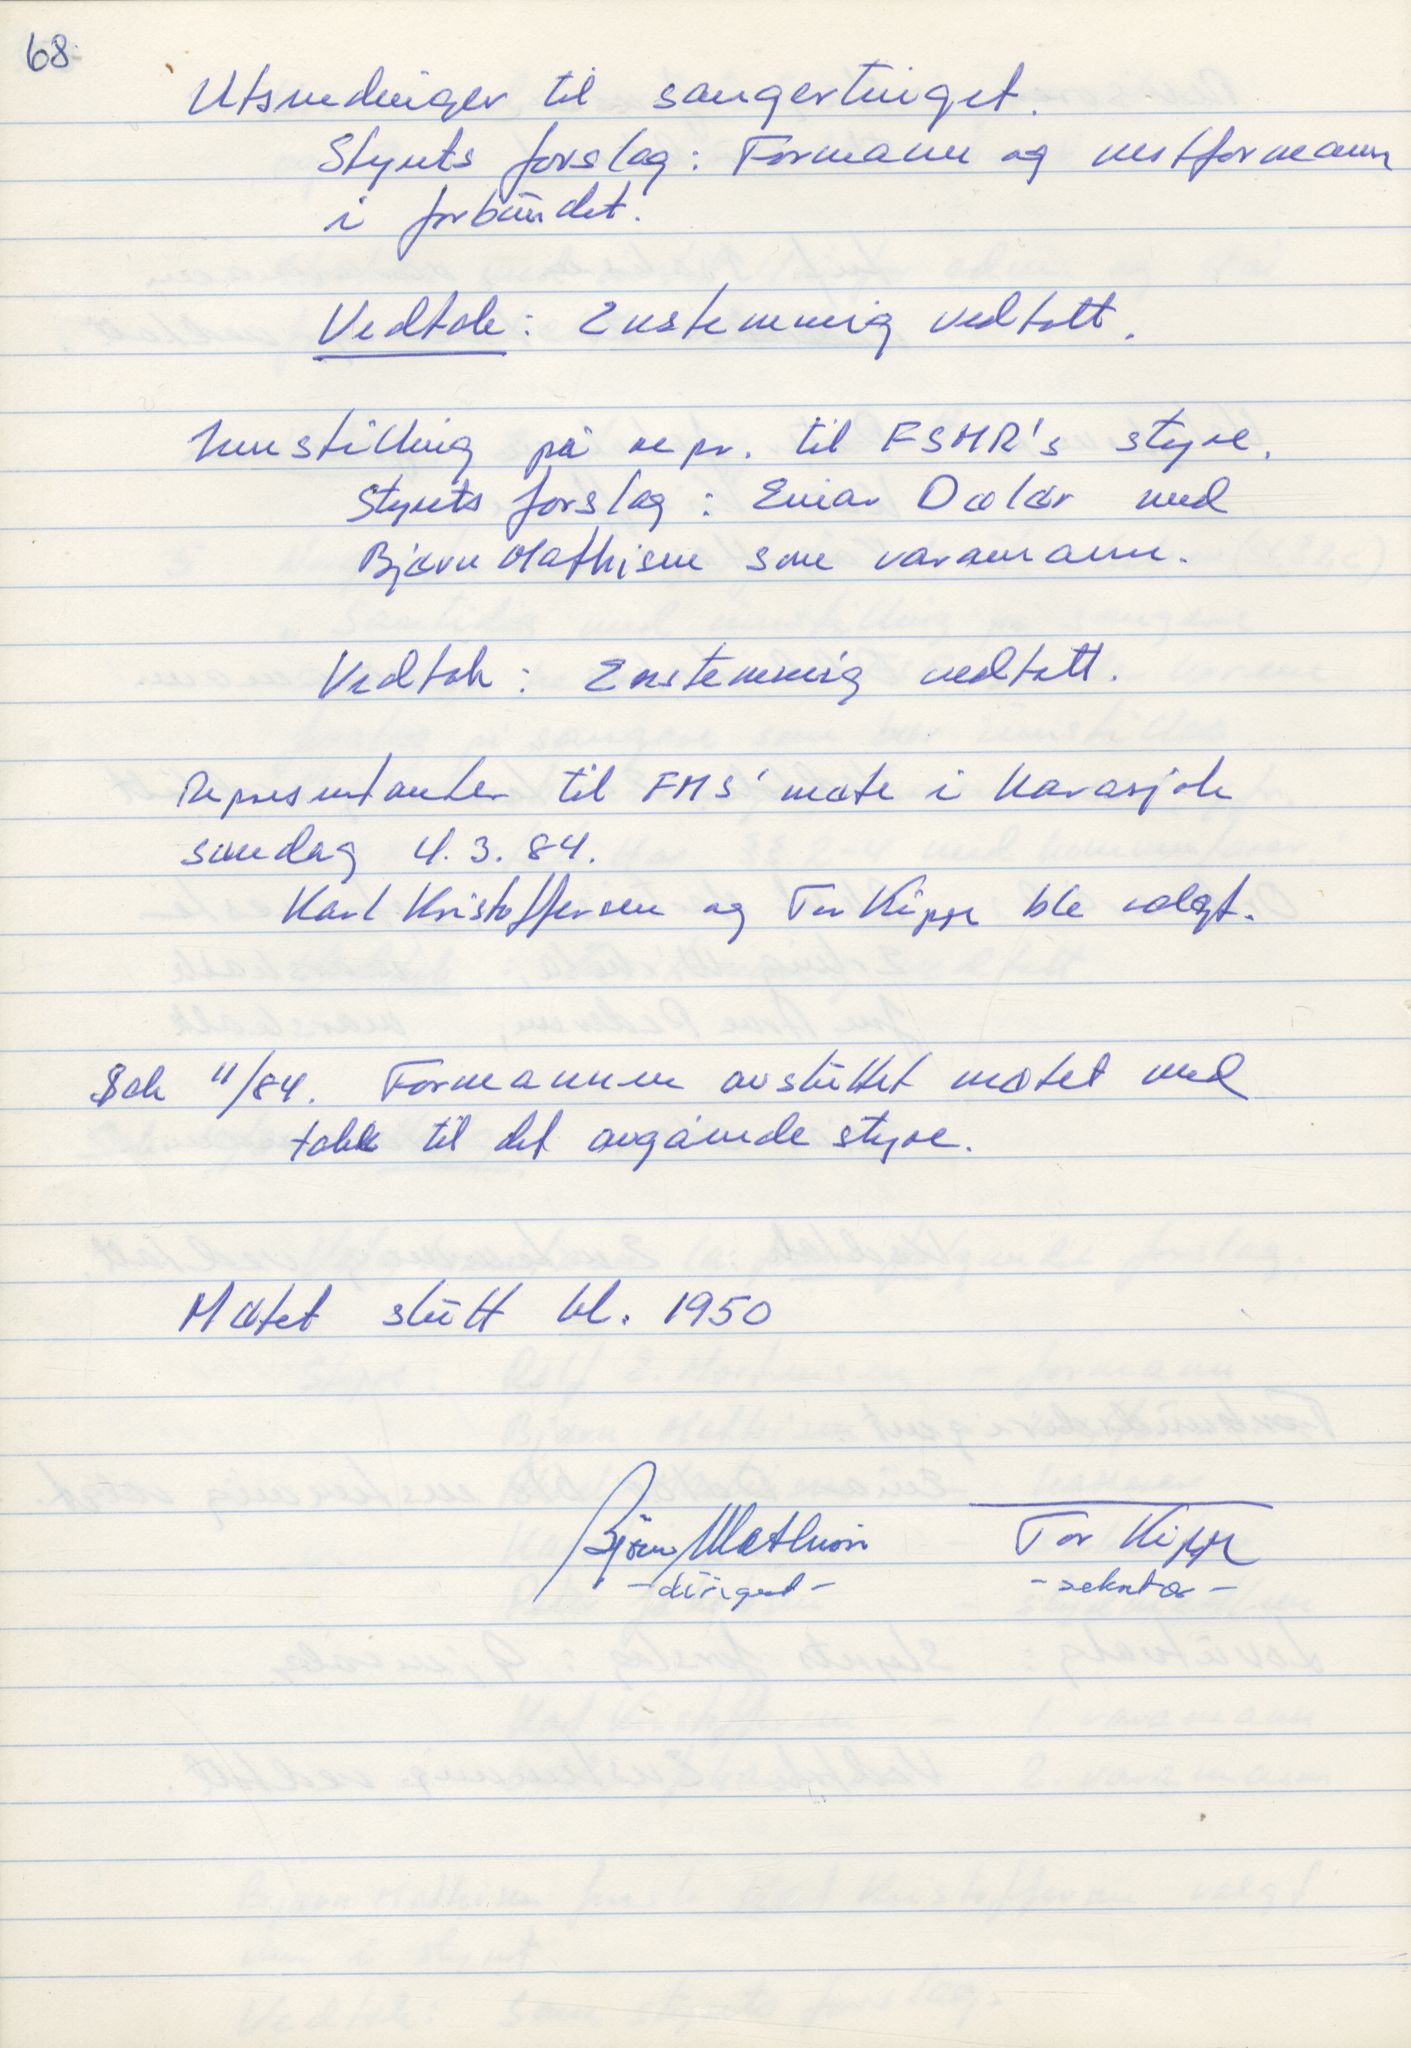 68
Utsendinger til sangertinget.
Styrets forslag: Formann og nestformann
i forbundet.
Vedtak: Enstemmig vedtatt.
Innstilling på repr. til FSMR's styre.
Styrets forslag: Einar Dalår med
Bjørn Mathisen som varamann.
Vedtak: Enstemmig vedtatt.
Representanter til FMS' møte i Karasjok
søndag 4.3.84.
Karl Kristoffersen og Tor Kippe ble valgt.
Sak 11/84. Formannen avsluttet møtet med
takk til det avgående styre.
Møtet slutt kl. 1950
Bjørn Mathisen Tor Kippe
-dirigent- -sekretær-